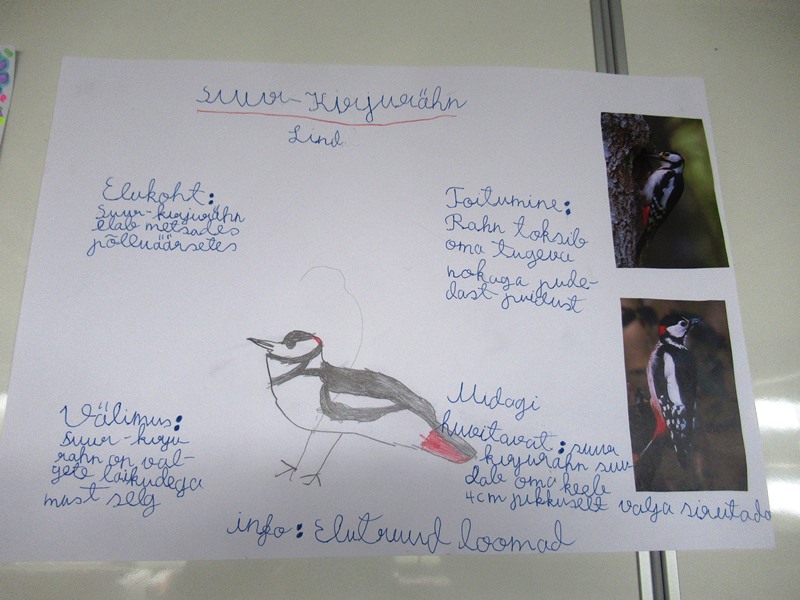 Suur-Kirjurähn
Lind
Elukoht:
Suur-kirjurähn
elab metsades
põlluäärsetes
Toitumine:
Rähn toksib
oma tugeva
nokaga pude-
dast puidust
Välimus:
Suur-kirju
rähn on val-
gete laikudega
must selg
Midagi
huvitavat: suur
kirjurähn suu-
dab oma keele
4cm pikkuselt välja sirutada
info: Elutruud loomad